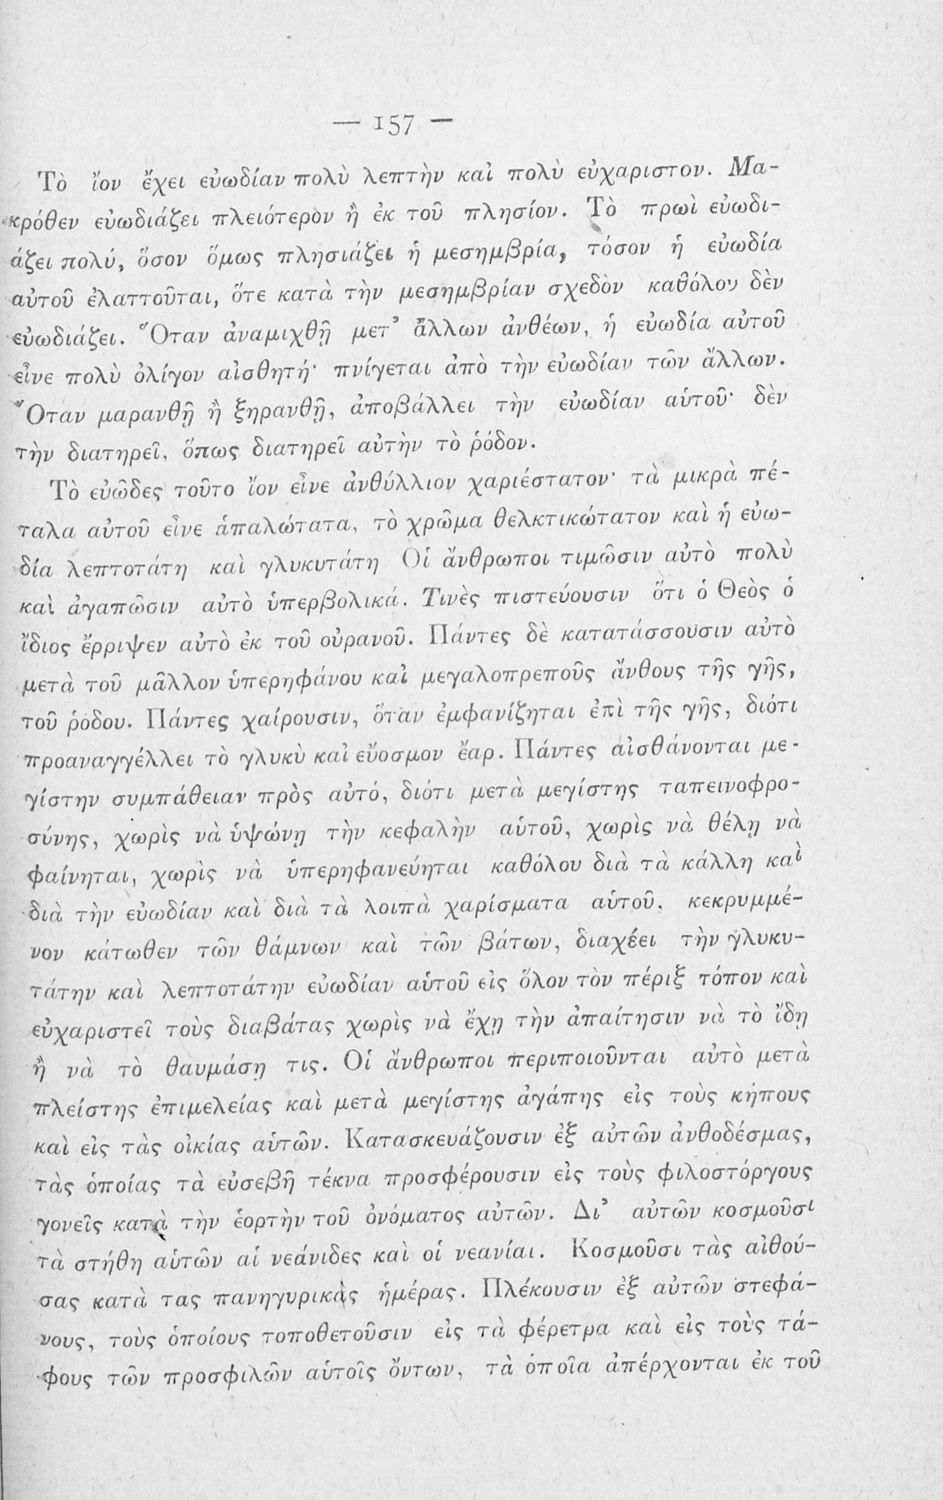 — 157 —
Τὸ ἴον ἔχει εὐωδίαν πολὺ λεπτὴν καὶ πολὺ εὐχάριστον. Μα-
κρόθεν εὐωδιάζει πλειότερὸν ἢ ἐκ τοῦ πλησίον. Τὸ πρωὶ εὐωδι-
άζει πολύ, ὅσον ὅμως πλησιάζει ἡ μεσημβρία, τόσον ἡ εὐωδία
αὐτοῦ ἐλαττοῦται, ὅτε κατὰ τὴν μεσημβρίαν σχεδὸν καθόλου δὲν
εὐωδιάζει. Ὅταν ἀναμιχθῇ μετ’ ἄλλων ἀνθέων, ἡ εὐωδία αὐτοῦ
εἶνε πολὺ ὀλίγον αἰσθητή· πνίγεται ἀπὸ τὴν εὐωδίαν τῶν ἄλλων.
Ὅταν μαρανθῇ ἢ ξηρανθῇ, ἀποβάλλει τὴν εὐωδίαν αὑτοῦ· δὲν
τὴν διατηρεῖ, ὅπως διατηρεῖ αὐτὴν τὸ ῥόδον.
Τὸ εὐῶδες τοῦτο ἴον εἶνε ἀνθύλλιον χαριέστατον· τὰ μικρὰ πέ-
ταλα αὐτοῦ εἶνε ἁπαλώτατα, τὸ χρῶμα θελκτικώτατον καὶ ἡ εὐω-
δία λεπτοτάτη καὶ γλυκυτάτη Οἱ ἄνθρωποι τιμῶσιν αὐτὸ πολὺ
καὶ ἀγαπῶσιν αὐτὸ ὑπερβολικά. Τινὲς πιστεύουσιν ὅτι ὁ Θεὸς ὁ
ἴδιος ἔρριψεν αὐτὸ ἐκ τοῦ οὐρανοῦ. Πάντες δὲ κατατάσσουσιν αὐτὸ
μετὰ τοῦ μᾶλλον ὑπερηφάνου καὶ μεγαλοπρεποῦς ἄνθους τῆς γῆς,
τοῦ ῥόδου. Πάντες χαίρουσιν, ὅταν ἐμφανίζηται ἐπὶ τῆς γῆς, διότι
προαναγγέλλει τὸ γλυκὺ καὶ εὔοσμον ἔαρ. Πάντες αἰσθάνονται με-
γίστην συμπάθειαν πρὸς αὐτό, διότι μετὰ μεγίστης ταπεινοφρο-
σύνης, χωρὶς νὰ ὑψώνῃ τὴν κεφαλὴν αὑτοῦ, χωρὶς νὰ θέλῃ νὰ
φαίνηται, χωρὶς νὰ ὑπερηφανεύηται καθόλου διὰ τὰ κάλλη καὶ
διὰ τὴν εὐωδίαν καὶ διὰ τὰ λοιπὰ χαρίσματα αὑτοῦ, κεκρυμμέ-
νον κάτωθεν τῶν θάμνων καὶ τῶν βάτων, διαχέει τὴν γλυκυ-
τάτην καὶ λεπτοτάτην εὐωδίαν αὑτοῦ εἰς ὅλον τὸν πέριξ τόπον καὶ
εὐχαριστεῖ τοὺς διαβάτας χωρὶς νὰ ἔχῃ τὴν ἀπαίτησιν νὰ τὸ ἴδῃ
ἢ νὰ τὸ θαυμάσῃ τις. Οἱ ἄνθρωποι περιποιοῦνται αὐτὸ μετὰ
πλείστης ἐπιμελείας καὶ μετὰ μεγίστης ἀγάπης εἰς τοὺς κήπους
καὶ εἰς τὰς οἰκίας αὑτῶν. Κατασκευάζουσιν ἐξ αὐτῶν ἀνθοδέσμας,
τὰς ὁποίας τὰ εὐσεβῆ τέκνα προσφέρουσιν εἰς τοὺς φιλοστόργους
γονεῖς κατὰ τὴν ἑορτὴν τοῦ ὀνόματος αὐτῶν. Δι’ αὐτῶν κοσμοῦσι
τὰ στήθη αὑτῶν αἱ νεάνιδες καὶ οἱ νεανίαι. Κοσμοῦσι τὰς αἰθού-
σας κατὰ τας πανηγυρικὰς ἡμέρας. Πλέκουσιν ἐξ αὐτῶν στεφά-
νους, τοὺς ὁποίους τοποθετοῦσιν εἰς τὰ φέρετρα καὶ εἰς τοὺς τά-
φους τῶν προσφιλῶν αὑτοῖς ὄντων, τὰ ὁποῖα ἀπέρχονται ἐκ τοῦ